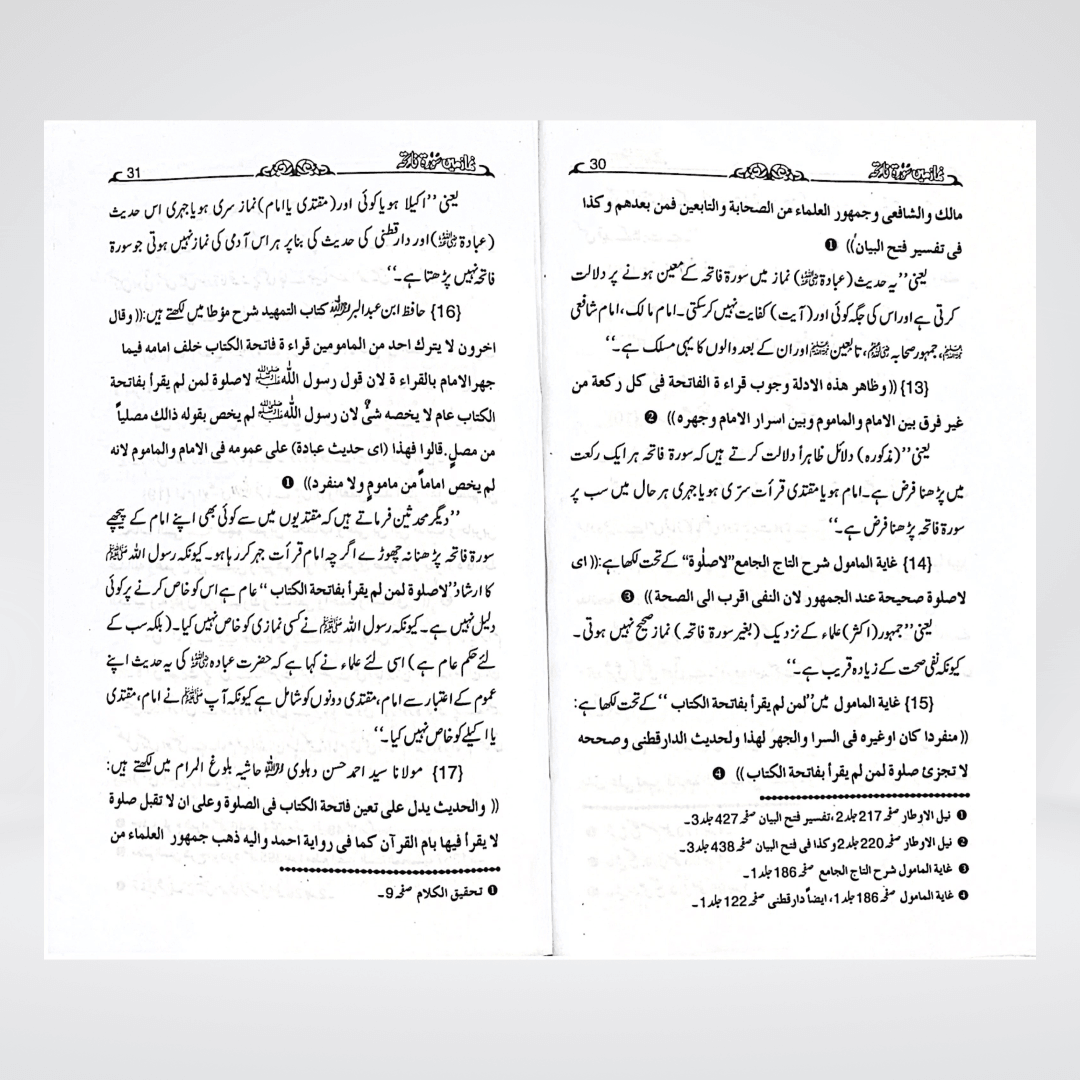 نماز میں سورۃ فاتحہ
30
مالك والشافعى وجمهور العلماء من الصحابة والتابعين فمن بعدهم و كذا
فى تفسير فتح البيان)) ❶
یعنی ’’یہ حدیث (عبادۃ رضی اللہ عنہ) نماز میں سورۃ فاتحہ کے معین ہونے پر دلالت
کرتی ہے اور اس کی جگہ کوئی اور (آیت) کفایت نہیں کرسکتی۔ امام مالک، امام شافعی
جمہور صحابہ رضی اللہ عنہم، تابعین اور ان کے بعد والوں کا یہی مسلک ہے۔‘‘
{13} ((وظاهر هذه الادلة وجوب قراء ة الفاتحة فى كل ركعة من
غير فرق بين الامام والماموم وبين اسرار الامام وجهره)) ❷
یعنی ’’(مذکورہ) دلائل ظاہراً دلالت کرتے ہیں کہ سورۃ فاتحہ ہر ایک رکعت
میں پڑھنا فرض ہے۔ امام ہو یا مقتدی قرأت سرّی ہو یا جہری ہر حال میں سب پر
سورۃ فاتحہ پڑھنا فرض ہے۔‘‘
{14} غایة المامول شرح التاج الجامع ’’لاصلوٰة‘‘ کے تحت لکھا ہے: ((اى
لاصلوة صحيحة عند الجمهور لان النفى اقرب الى الصحة)) ❸
یعنی ’’جمہور (اکثر) علماء کے نزدیک (بغیر سورۃ فاتحہ) نماز صحیح نہیں ہوتی۔
کیونکہ نفی صحت کے زیادہ قریب ہے۔‘‘
{15} غایة المامول میں ’’لمن لم يقرأ بفاتحة الكتاب‘‘ کے تحت لکھا ہے:
((منفردا كان اوغيره فى السرا والجهر لهذا ولحديث الدارقطنى وصححه
لا تجزئ صلوة لمن لم يقرأ بفاتحة الكتاب)) ❹
❶ نيل الاوطار صفحہ 217 جلد 2، تفسير فتح البيان صفحہ 427 جلد 3۔
❷ نيل الاوطار صفحہ 220 جلد 2 وكذا فى فتح البيان صفحہ 438 جلد 3۔
❸ غاية المامول شرح التاج الجامع صفحہ 186 جلد 1۔
❹ غاية المامول صفحہ 186 جلد 1، ايضاً دارقطنى صفحہ 122 جلد 1۔
نماز میں سورۃ فاتحہ
31
یعنی ’’اکیلا ہو یا کوئی اور (مقتدی یا امام) نماز سری ہو یا جہری اس حدیث
(عبادۃ رضی اللہ عنہ) اور دارقطنی کی حدیث کی بنا پر ہر اس آدمی کی نماز نہیں ہوتی جو سورۃ
فاتحہ نہیں پڑھتا ہے۔‘‘
{16} حافظ ابن عبدالبر رحمہ اللہ کتاب التمهيد شرح مؤطا میں لکھتے ہیں: ((وقال
اخرون لا يترك احد من المامومين قراء ة فاتحة الكتاب خلف امامه فيما
جهر الامام بالقراء ة لان قول رسول الله ﷺ لاصلوة لمن لم يقرأ بفاتحة
الكتاب عام لا يخصه شئ لان رسول الله ﷺ لم يخص بقوله ذالك مصلياً
من مصلٍ. قالوا فهذا (اى حديث عبادة) على عمومه فى الامام والماموم لانه
لم يخص اماماً من مامومٍ ولا منفرد)) ❶
’’دیگر محدثین فرماتے ہیں کہ مقتدیوں میں سے کوئی بھی اپنے امام کے پیچھے
سورۃ فاتحہ پڑھنا نہ چھوڑے اگرچہ امام قرأت جہر کر رہا ہو۔ کیونکہ رسول اللہ ﷺ
کا ارشاد ’’لاصلوة لمن لم يقرأ بفاتحة الكتاب‘‘ عام ہے اس کو خاص کرنے پر کوئی
دلیل نہیں ہے۔ کیونکہ رسول اللہ ﷺ نے کسی نمازی کو خاص نہیں کیا۔ (بلکہ سب کے
لئے حکم عام ہے) اسی لئے علماء نے کہا ہے کہ حضرت عبادہ رضی اللہ عنہ کی یہ حدیث اپنے
عموم کے اعتبار سے امام، مقتدی دونوں کو شامل ہے کیونکہ آپ ﷺ نے امام، مقتدی
یا اکیلے کو خاص نہیں کیا۔‘‘
{17} مولانا سید احمد حسن دہلوی رحمہ اللہ حاشیہ بلوغ المرام میں لکھتے ہیں:
((والحديث يدل على تعين فاتحة الكتاب فى الصلوة وعلى ان لا تقبل صلوة
لا يقرأ فيها بام القرآن كما فى رواية احمد واليه ذهب جمهور العلماء من
❶ تحقيق الكلام صفحہ 9۔